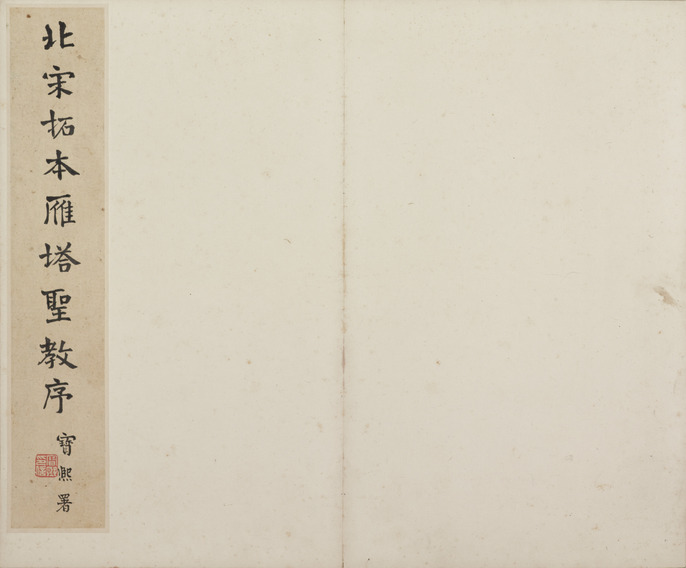 北宋拓本雁塔聖教序
寶熙署